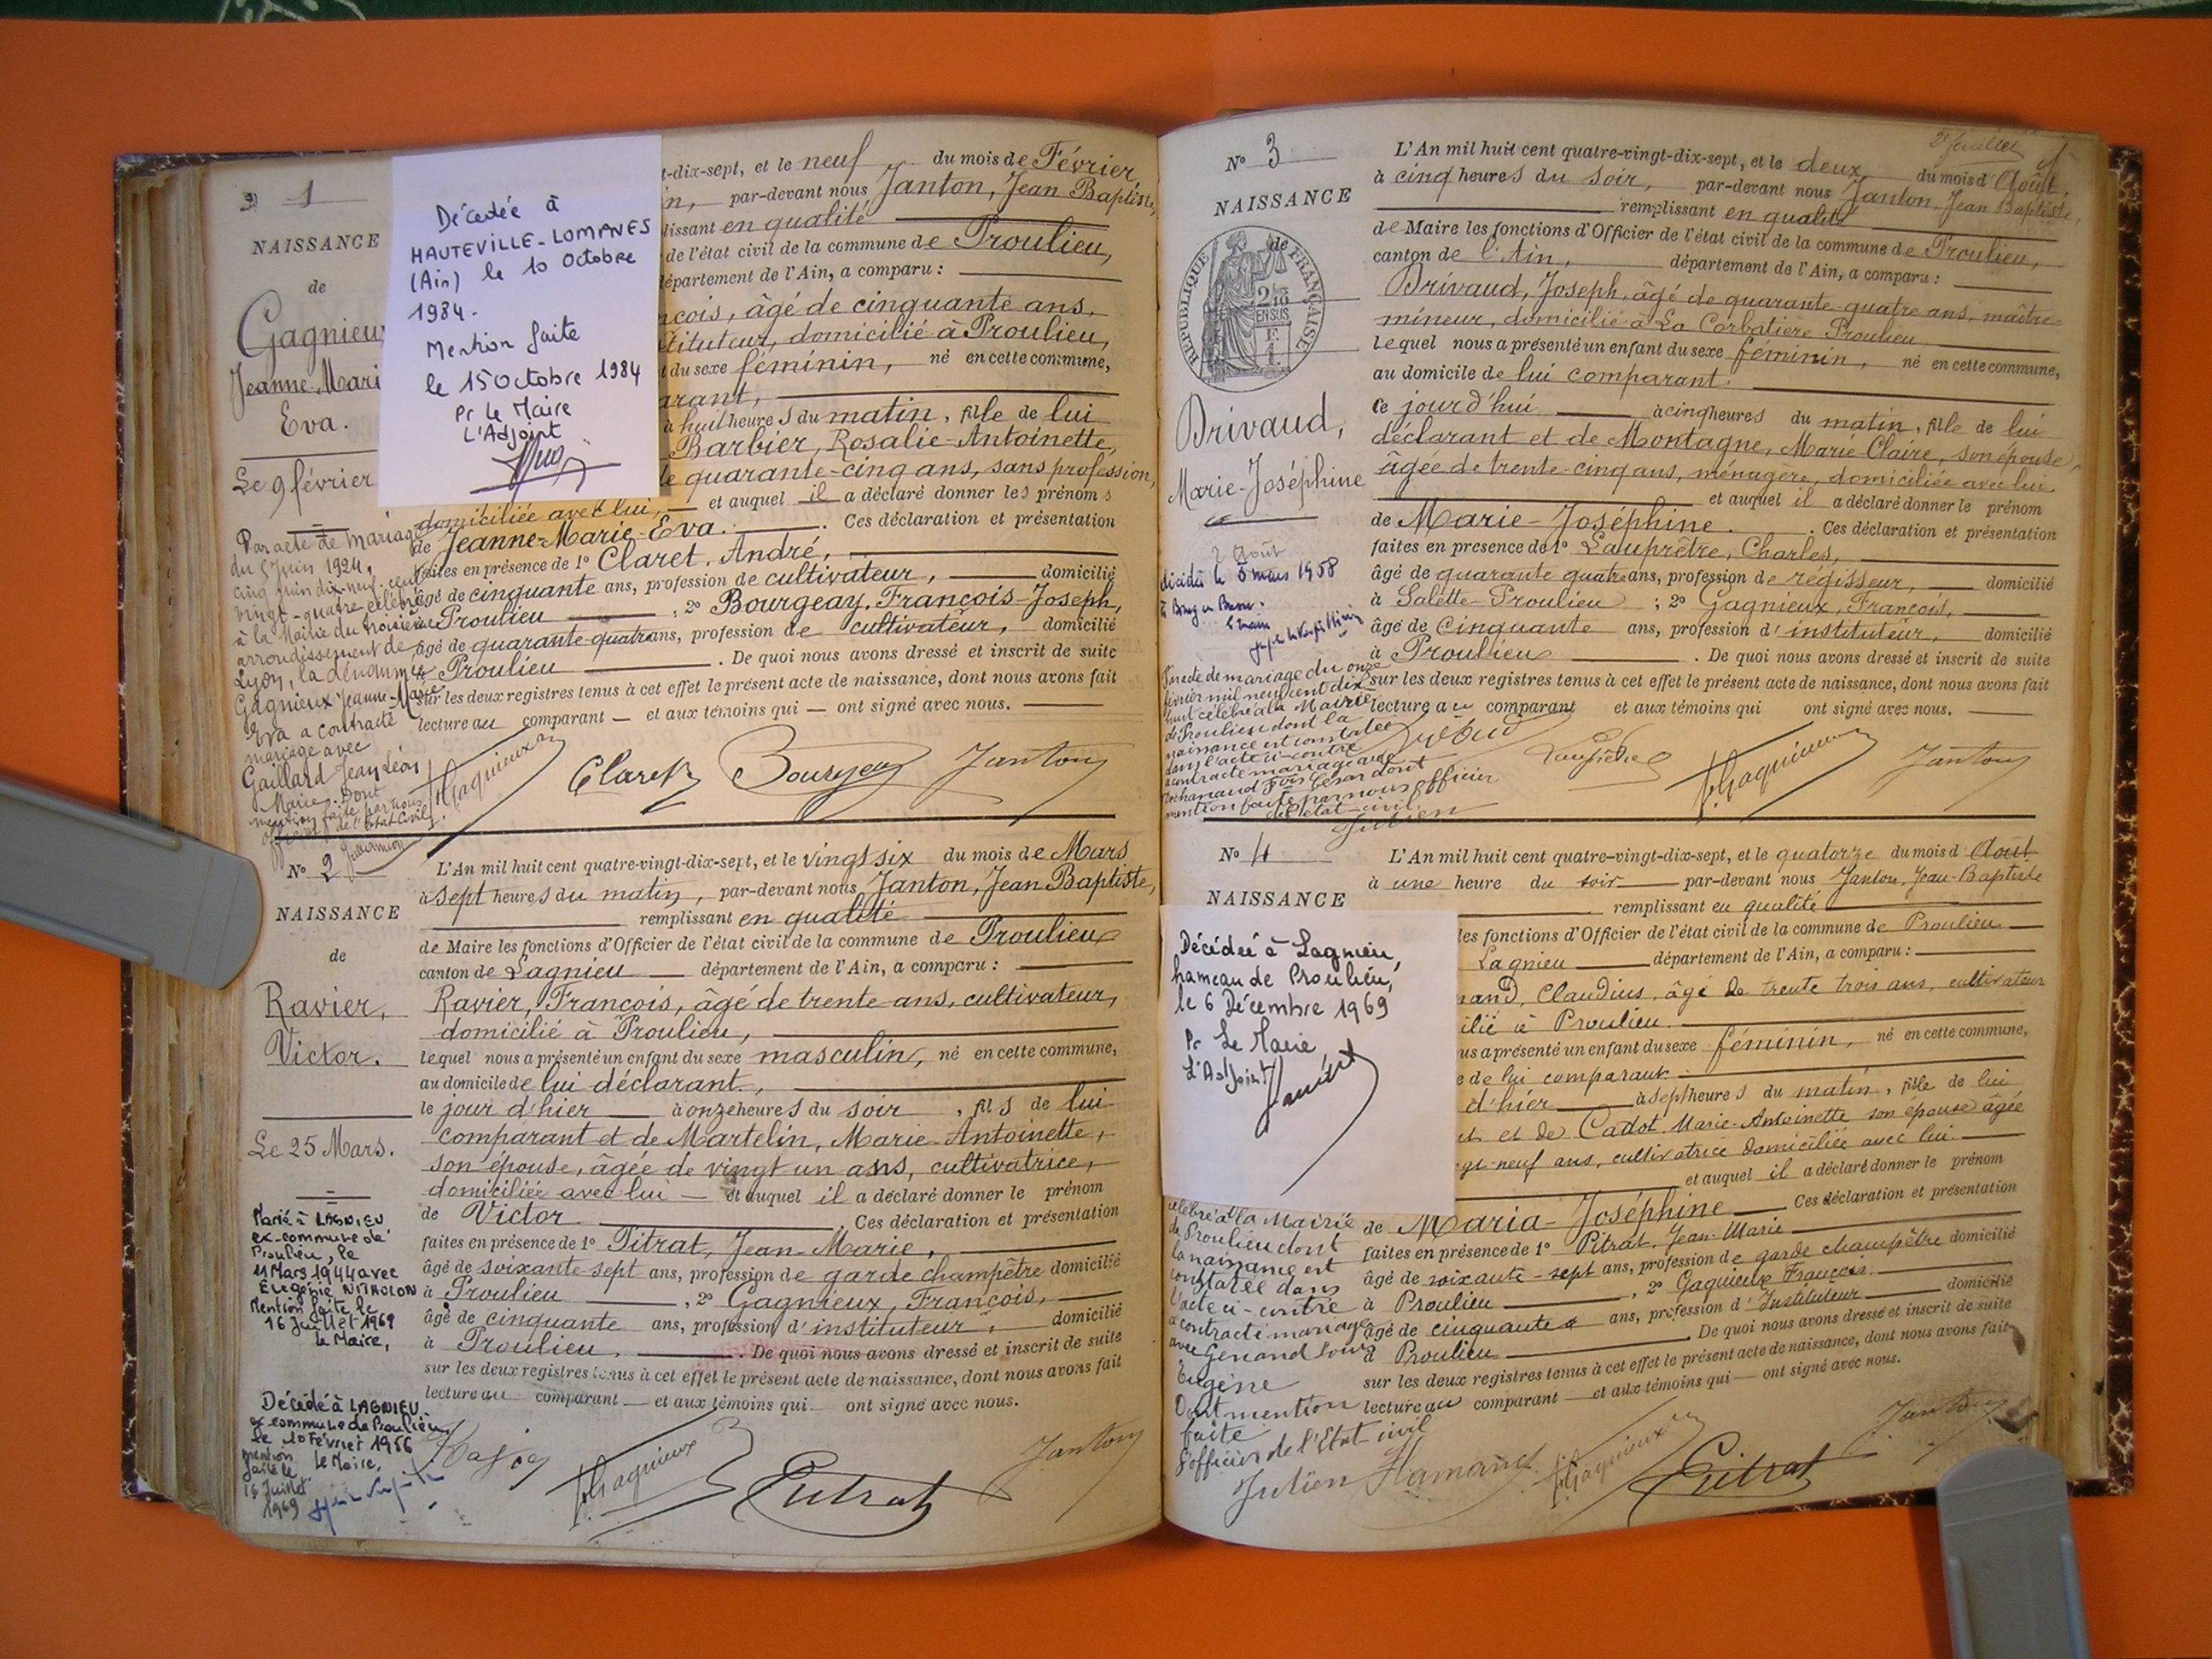 1
NAISSANCE
de
Gagnieux
Jeanne-Mari
Eva.
Le 9 février
Par acte de mariage
du 5 Juin 1924,
cinq juin dix-neuf-cent
vingt-quatre célébré
à la Mairie du troisième
arrondissement de
Lyon, la dénommée
Gagnieux Jeanne-Marie
Eva a contracté
mariage avec
Gaillard Jean Léon
Marie. Dont
mention faite par nous
officier de l'Etat Civil.
Décédée à
HAUTEVILLE-LOMPNES
(Ain) le 10 Octobre
1984.
Mention faite
le 15 Octobre 1984
Pr Le Maire
L'Adjoint
t-dix-sept, et le neuf du mois de Février
n, par-devant nous Janton, Jean Baptiste,
lissant en qualité
de l'état civil de la commune de Proulieu,
département de l'Ain, a comparu :
ncois, âgé de cinquante ans,
tituteur, domicilié à Proulieu,
t du sexe féminin, né en cette commune,
arant,
à huit heures du matin, fille de lui
Barbier, Rosalie-Antoinette,
de quarante-cinq ans, sans profession,
domiciliée avec lui, et auquel il a déclaré donner les prénoms
de Jeanne-Marie-Eva. Ces déclaration et présentation
faites en présence de 1° Claret, André,
âgé de cinquante ans, profession de cultivateur, domicilié
à Proulieu, 2° Bourgeay, François-Joseph,
âgé de quarante-quatre ans, profession de cultivateur, domicilié
à Proulieu. De quoi nous avons dressé et inscrit de suite
sur les deux registres tenus à cet effet le présent acte de naissance, dont nous avons fait
lecture au comparant — et aux témoins qui — ont signé avec nous.
f. Gagnieux Claret Bourgeay Janton
N° 2
NAISSANCE
de
Ravier,
Victor.
Le 25 Mars.
Marié à LAGNIEU
ex-commune de
Proulieu, le
11 Mars 1944 avec
Eugénie
Mention faite le
16 Juillet 1969
le Maire,
Décédé à LAGNIEU
ex commune de Proulieu
le 10 Février 1956
mention Le Maire,
faite le
16 Juillet
1969
L'An mil huit cent quatre-vingt-dix-sept, et le vingt six du mois de Mars
à sept heures du matin, par-devant nous Janton, Jean Baptiste,
remplissant en qualité
de Maire les fonctions d'Officier de l'état civil de la commune de Proulieu
canton de Lagnieu département de l'Ain, a comparu :
Ravier, François, âgé de trente ans, cultivateur,
domicilié à Proulieu,
lequel nous a présenté un enfant du sexe masculin, né en cette commune,
au domicile de lui déclarant,
le jour d'hier à onze heures du soir, fils de lui
comparant et de Martelin, Marie-Antoinette,
son épouse, âgée de vingt un ans, cultivatrice,
domiciliée avec lui — et auquel il a déclaré donner le prénom
de Victor. Ces déclaration et présentation
faites en présence de 1° Pitrat, Jean-Marie,
âgé de soixante-sept ans, profession de garde champêtre domicilié
à Proulieu, 2° Gagnieux, François,
âgé de cinquante ans, profession d'instituteur, domicilié
à Proulieu. De quoi nous avons dressé et inscrit de suite
sur les deux registres tenus à cet effet le présent acte de naissance, dont nous avons fait
lecture au comparant — et aux témoins qui — ont signé avec nous.
f. Gagnieux Pitrat Janton
N° 3
NAISSANCE
de
RÉPUBLIQUE FRANÇAISE
Drivaud,
Marie-Joséphine
2 Août
décédée le 5 mars 1958
Par acte de mariage du onze
février mil neuf cent dix
huit célébré à la Mairie
de Proulieu dont la
naissance est constatée
dans l'acte ci-contre
a contracté mariage avec
mention faite par nous officier
de l'état-civil.
Julien
L'An mil huit cent quatre-vingt-dix-sept, et le deux du mois d'Août,
à cinq heures du soir, par-devant nous Janton, Jean Baptiste,
remplissant en qualité
de Maire les fonctions d'Officier de l'état civil de la commune de Proulieu,
canton de l'Ain, département de l'Ain, a comparu :
Drivaud, Joseph, âgé de quarante-quatre ans, maître-
mineur, domicilié à La Corbatière Proulieu
lequel nous a présenté un enfant du sexe féminin, né en cette commune,
au domicile de lui comparant.
ce jourd'hui à cinq heures du matin, fille de lui
déclarant et de Montagne, Marie Claire, son épouse,
âgée de trente-cinq ans, ménagère, domiciliée avec lui.
et auquel il a déclaré donner le prénom
de Marie-Joséphine. Ces déclaration et présentation
faites en présence de 1° Lauprêtre, Charles,
âgé de quarante quatre ans, profession de régisseur, domicilié
à Salette-Proulieu ; 2° Gagnieux, François,
âgé de cinquante ans, profession d'instituteur, domicilié
à Proulieu. De quoi nous avons dressé et inscrit de suite
sur les deux registres tenus à cet effet le présent acte de naissance, dont nous avons fait
lecture au comparant et aux témoins qui ont signé avec nous.
Lauprêtre f. Gagnieux Janton
N° 4
NAISSANCE
Décédée à Lagnieu,
hameau de Proulieu,
le 6 Décembre 1969
Pr Le Maire
L'Adjoint
célébré à la Mairie
de Proulieu dont
la naissance est
constatée dans
l'acte ci-contre
a contracté mariage
avec Genand Louis
Eugène
Dont mention
faite
l'officier de l'Etat civil
Julien
L'An mil huit cent quatre-vingt-dix-sept, et le quatorze du mois d'Août
à une heure du soir par-devant nous Janton, Jean-Baptiste
remplissant en qualité
les fonctions d'Officier de l'état civil de la commune de Proulieu
Lagnieu département de l'Ain, a comparu :
mand, Claudius, âgé de trente trois ans, cultivateur
ilié à Proulieu.
us a présenté un enfant du sexe féminin, né en cette commune,
e de lui comparant.
d'hier à sept heures du matin, fille de lui
t et de Cadot, Marie-Antoinette son épouse âgée
gt-neuf ans, cultivatrice domiciliée avec lui.
et auquel il a déclaré donner le prénom
de Maria-Joséphine Ces déclaration et présentation
faites en présence de 1° Pitrat, Jean-Marie
âgé de soixante-sept ans, profession de garde champêtre domicilié
à Proulieu, 2° Gagnieux François.
âgé de cinquante ans, profession d'Instituteur domicilié
à Proulieu. De quoi nous avons dressé et inscrit de suite
sur les deux registres tenus à cet effet le présent acte de naissance, dont nous avons fait
lecture au comparant — et aux témoins qui — ont signé avec nous.
Hamand f. Gagnieux Pitrat Janton